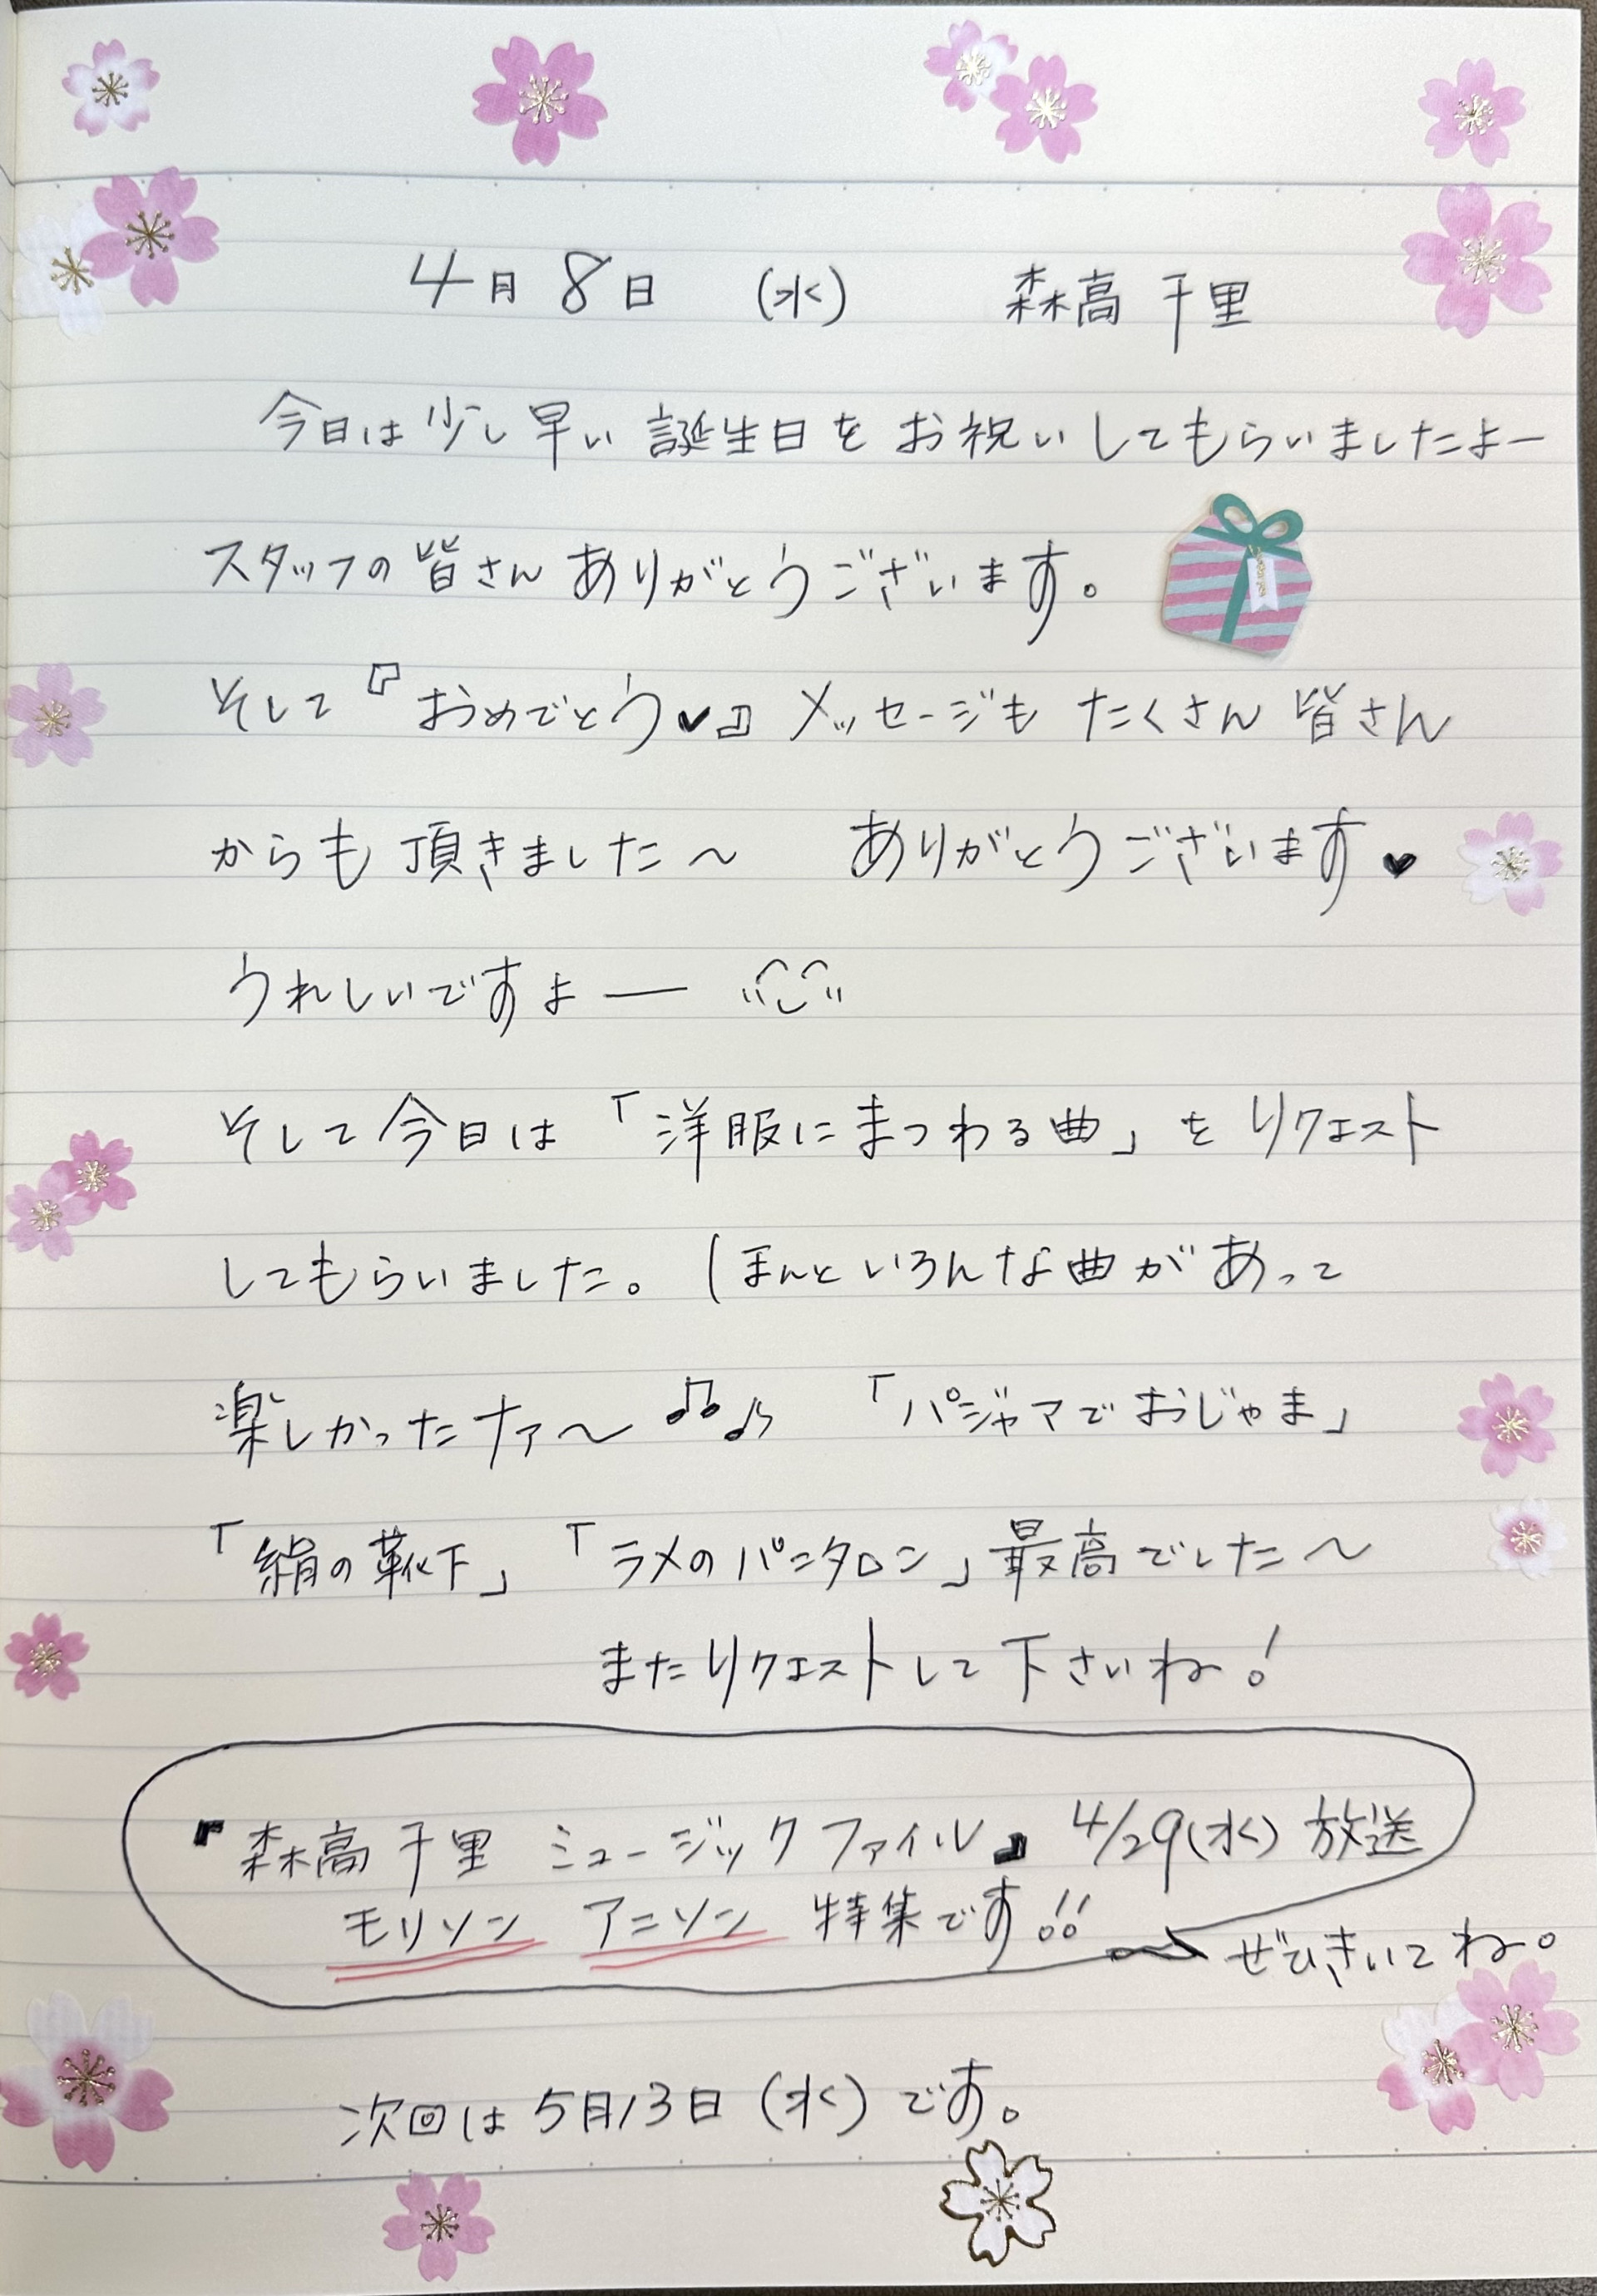 4月8日 (水) 森高千里
今日は少し早い誕生日をお祝いしてもらいましたよー
スタッフの皆さんありがとうございます。
そして『おめでとう♥』メッセージもたくさん皆さん
からも頂きました〜 ありがとうございます♥
うれしいですよー
そして今日は「洋服にまつわる曲」をリクエスト
してもらいました。(ほんといろんな曲があって
楽しかったナァ〜♫♪ 「パジャマでおじゃま」
「絹の靴下」「ラメのパンタロン」最高でした〜
またリクエストして下さいね!
『森高千里 ミュージックファイル』4/29(水)放送
モリソン アニソン 特集です!!
ぜひきいてね。
次回は5月13日(水)です。